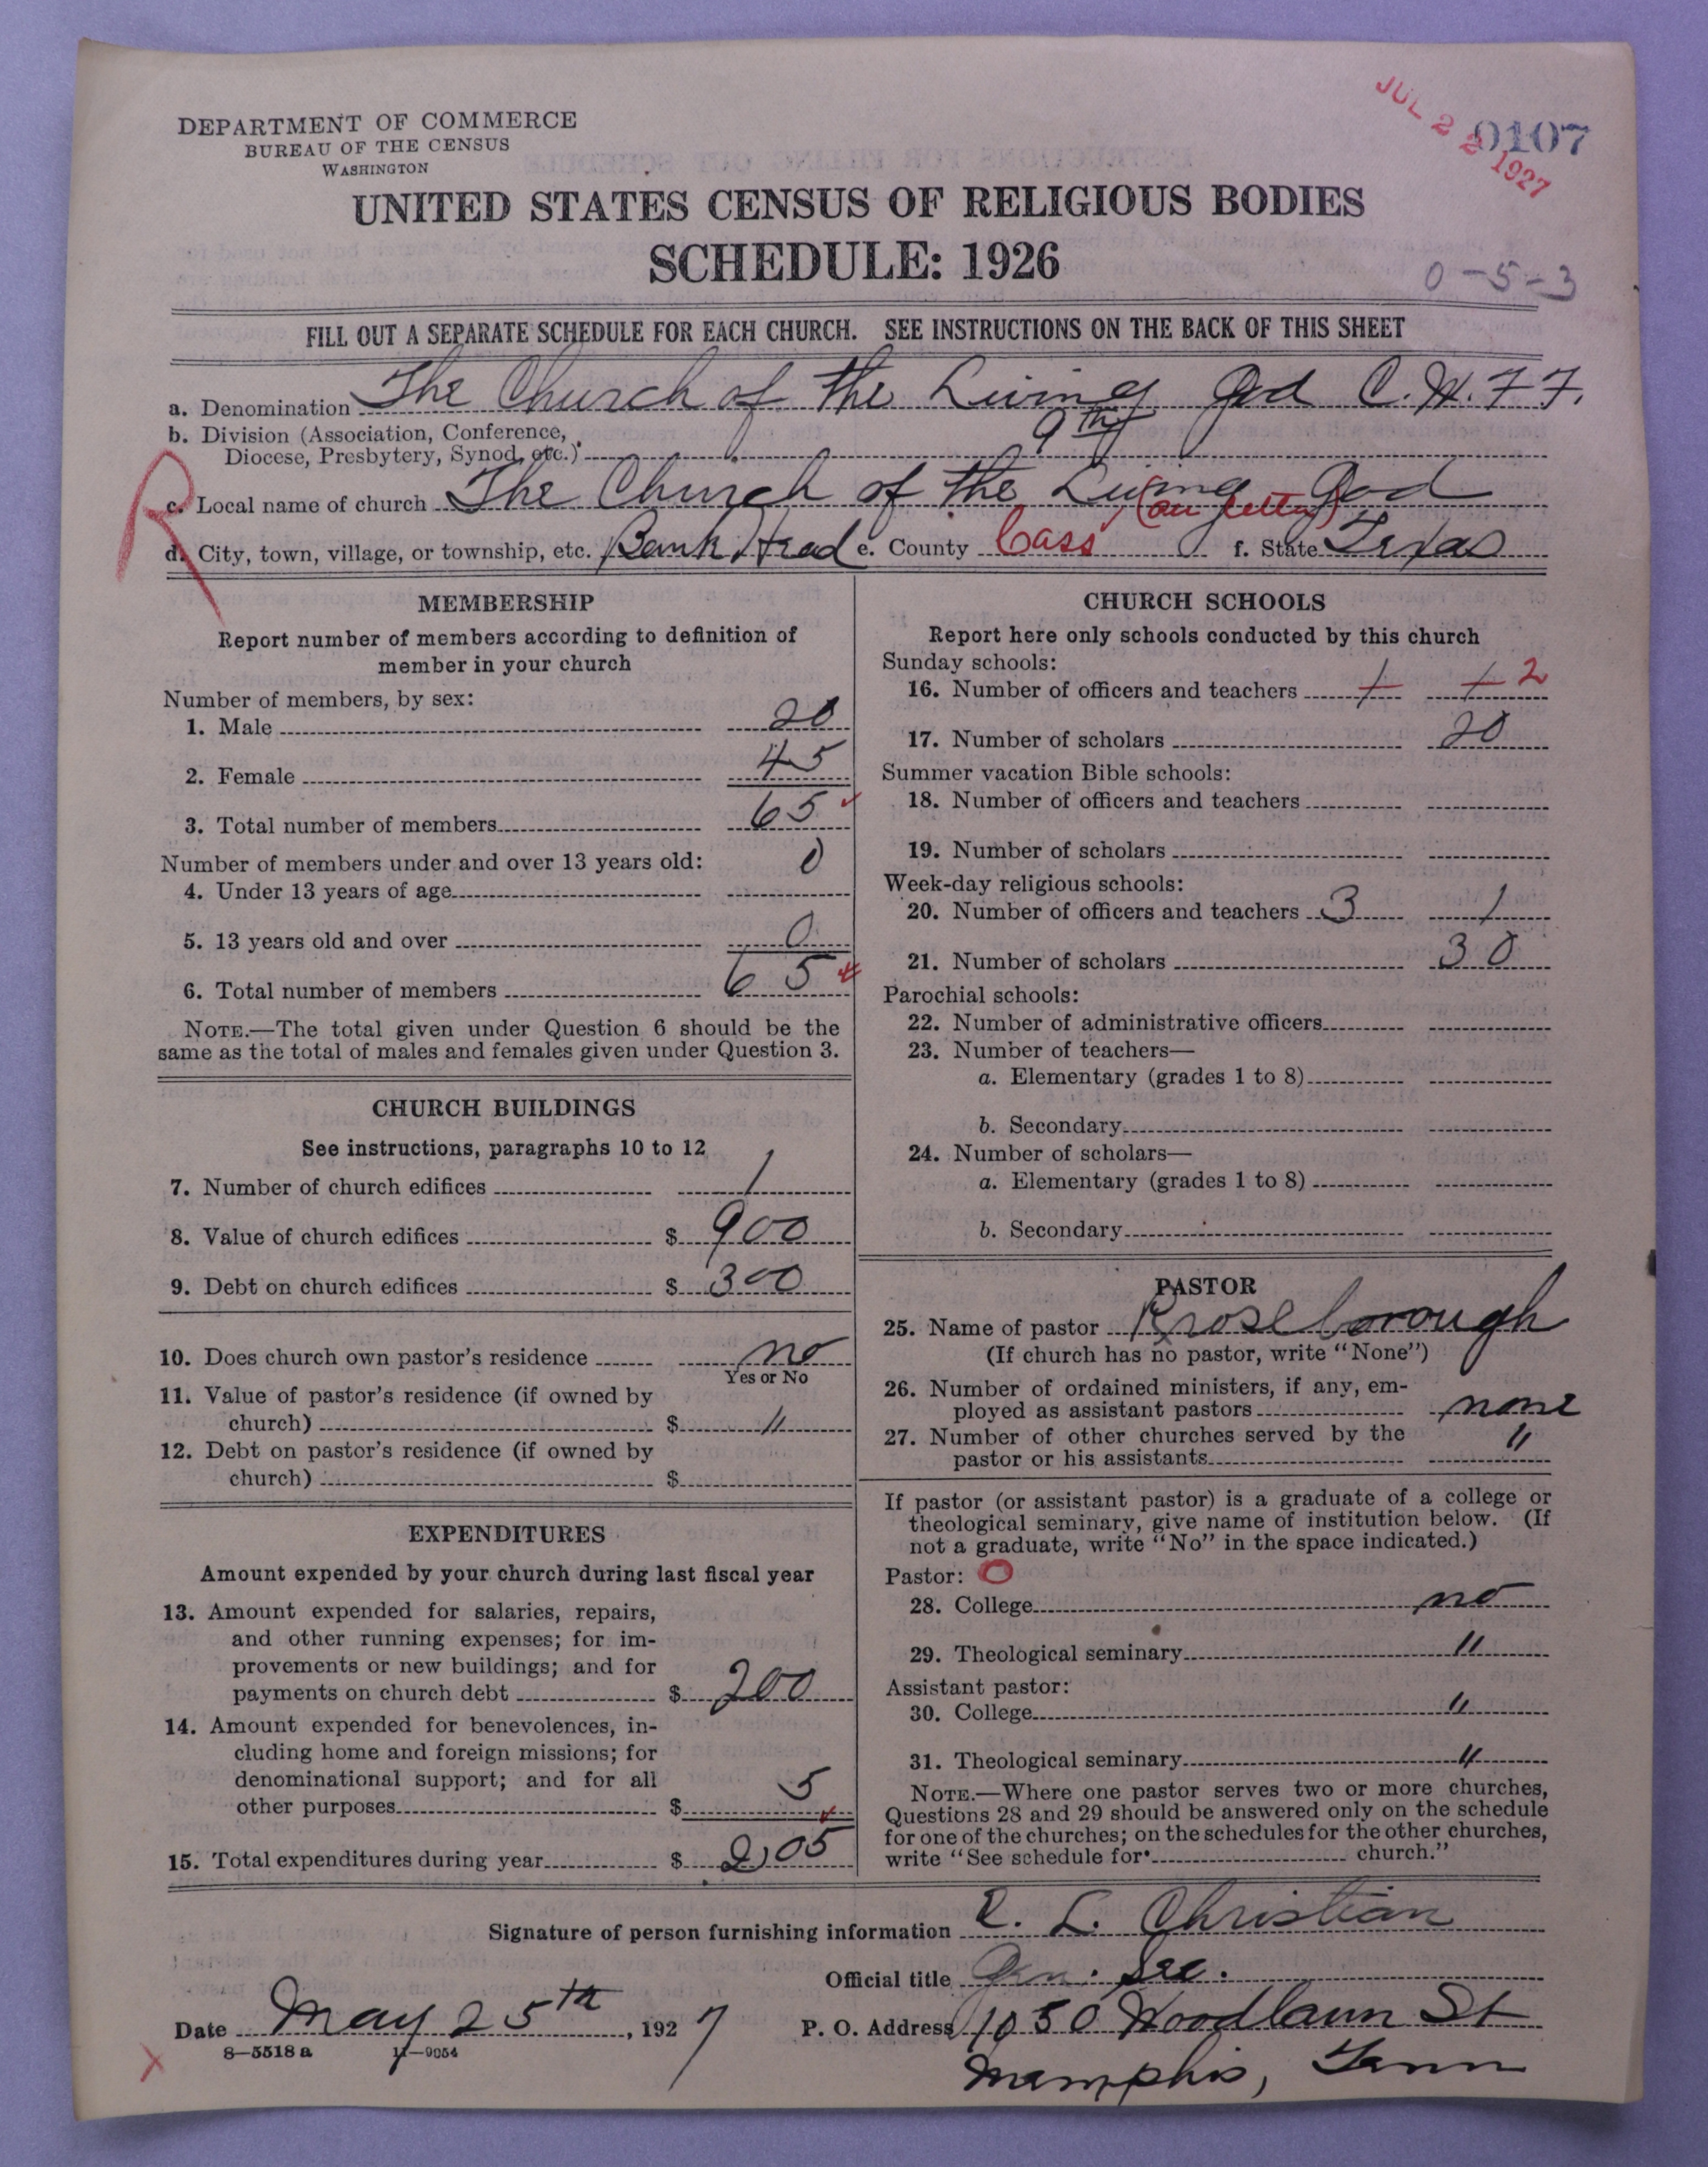 DEPARTMENT OF COMMERCE
BUREAU OF THE CENSUS
WASHINGTON
JUL 22 1927
0107
UNITED STATES CENSUS OF RELIGIOUS BODIES
SCHEDULE: 1926
0-5-3
FILL OUT A SEPARATE SCHEDULE FOR EACH CHURCH. SEE INSTRUCTIONS ON THE BACK OF THIS SHEET
a. Denomination The Church of the Living God C.W.F.F.
b. Division (Association, Conference, Diocese, Presbytery, Synod, etc.) 9th
R
c. Local name of church The Church of the Living God
d. City, town, village, or township, etc. Bank Head e. County Cass f. State Texas
MEMBERSHIP
Report number of members according to definition of
member in your church
Number of members, by sex:
1. Male 20
2. Female 45
3. Total number of members 65
Number of members under and over 13 years old:
4. Under 13 years of age 0
5. 13 years old and over 0
6. Total number of members 65
NOTE.—The total given under Question 6 should be the
same as the total of males and females given under Question 3.
CHURCH BUILDINGS
See instructions, paragraphs 10 to 12
7. Number of church edifices 1
8. Value of church edifices $ 900
9. Debt on church edifices $ 300
10. Does church own pastor's residence no
Yes or No
11. Value of pastor's residence (if owned by
church) $ "
12. Debt on pastor's residence (if owned by
church) $
EXPENDITURES
Amount expended by your church during last fiscal year
13. Amount expended for salaries, repairs,
and other running expenses; for im-
provements or new buildings; and for
payments on church debt $ 200
14. Amount expended for benevolences, in-
cluding home and foreign missions; for
denominational support; and for all
other purposes $ 5
15. Total expenditures during year $ 205
CHURCH SCHOOLS
Report here only schools conducted by this church
Sunday schools:
16. Number of officers and teachers 1 1 2
17. Number of scholars 20
Summer vacation Bible schools:
18. Number of officers and teachers
19. Number of scholars
Week-day religious schools:
20. Number of officers and teachers 3 1
21. Number of scholars 30
Parochial schools:
22. Number of administrative officers
23. Number of teachers—
a. Elementary (grades 1 to 8)
b. Secondary
24. Number of scholars—
a. Elementary (grades 1 to 8)
b. Secondary
PASTOR
25. Name of pastor Roseborough
(If church has no pastor, write "None")
26. Number of ordained ministers, if any, em-
ployed as assistant pastors none
27. Number of other churches served by the
pastor or his assistants "
If pastor (or assistant pastor) is a graduate of a college or
theological seminary, give name of institution below. (If
not a graduate, write "No" in the space indicated.)
Pastor: O
28. College no
29. Theological seminary "
Assistant pastor:
30. College "
31. Theological seminary "
NOTE.—Where one pastor serves two or more churches,
Questions 28 and 29 should be answered only on the schedule
for one of the churches; on the schedules for the other churches,
write "See schedule for church."
Signature of person furnishing information C. L. Christian
Official title Gen. Sec.
Date May 25th, 1927 P. O. Address 1050 Woodlawn St
8—5518 a 11—9054
Memphis, Tenn
X